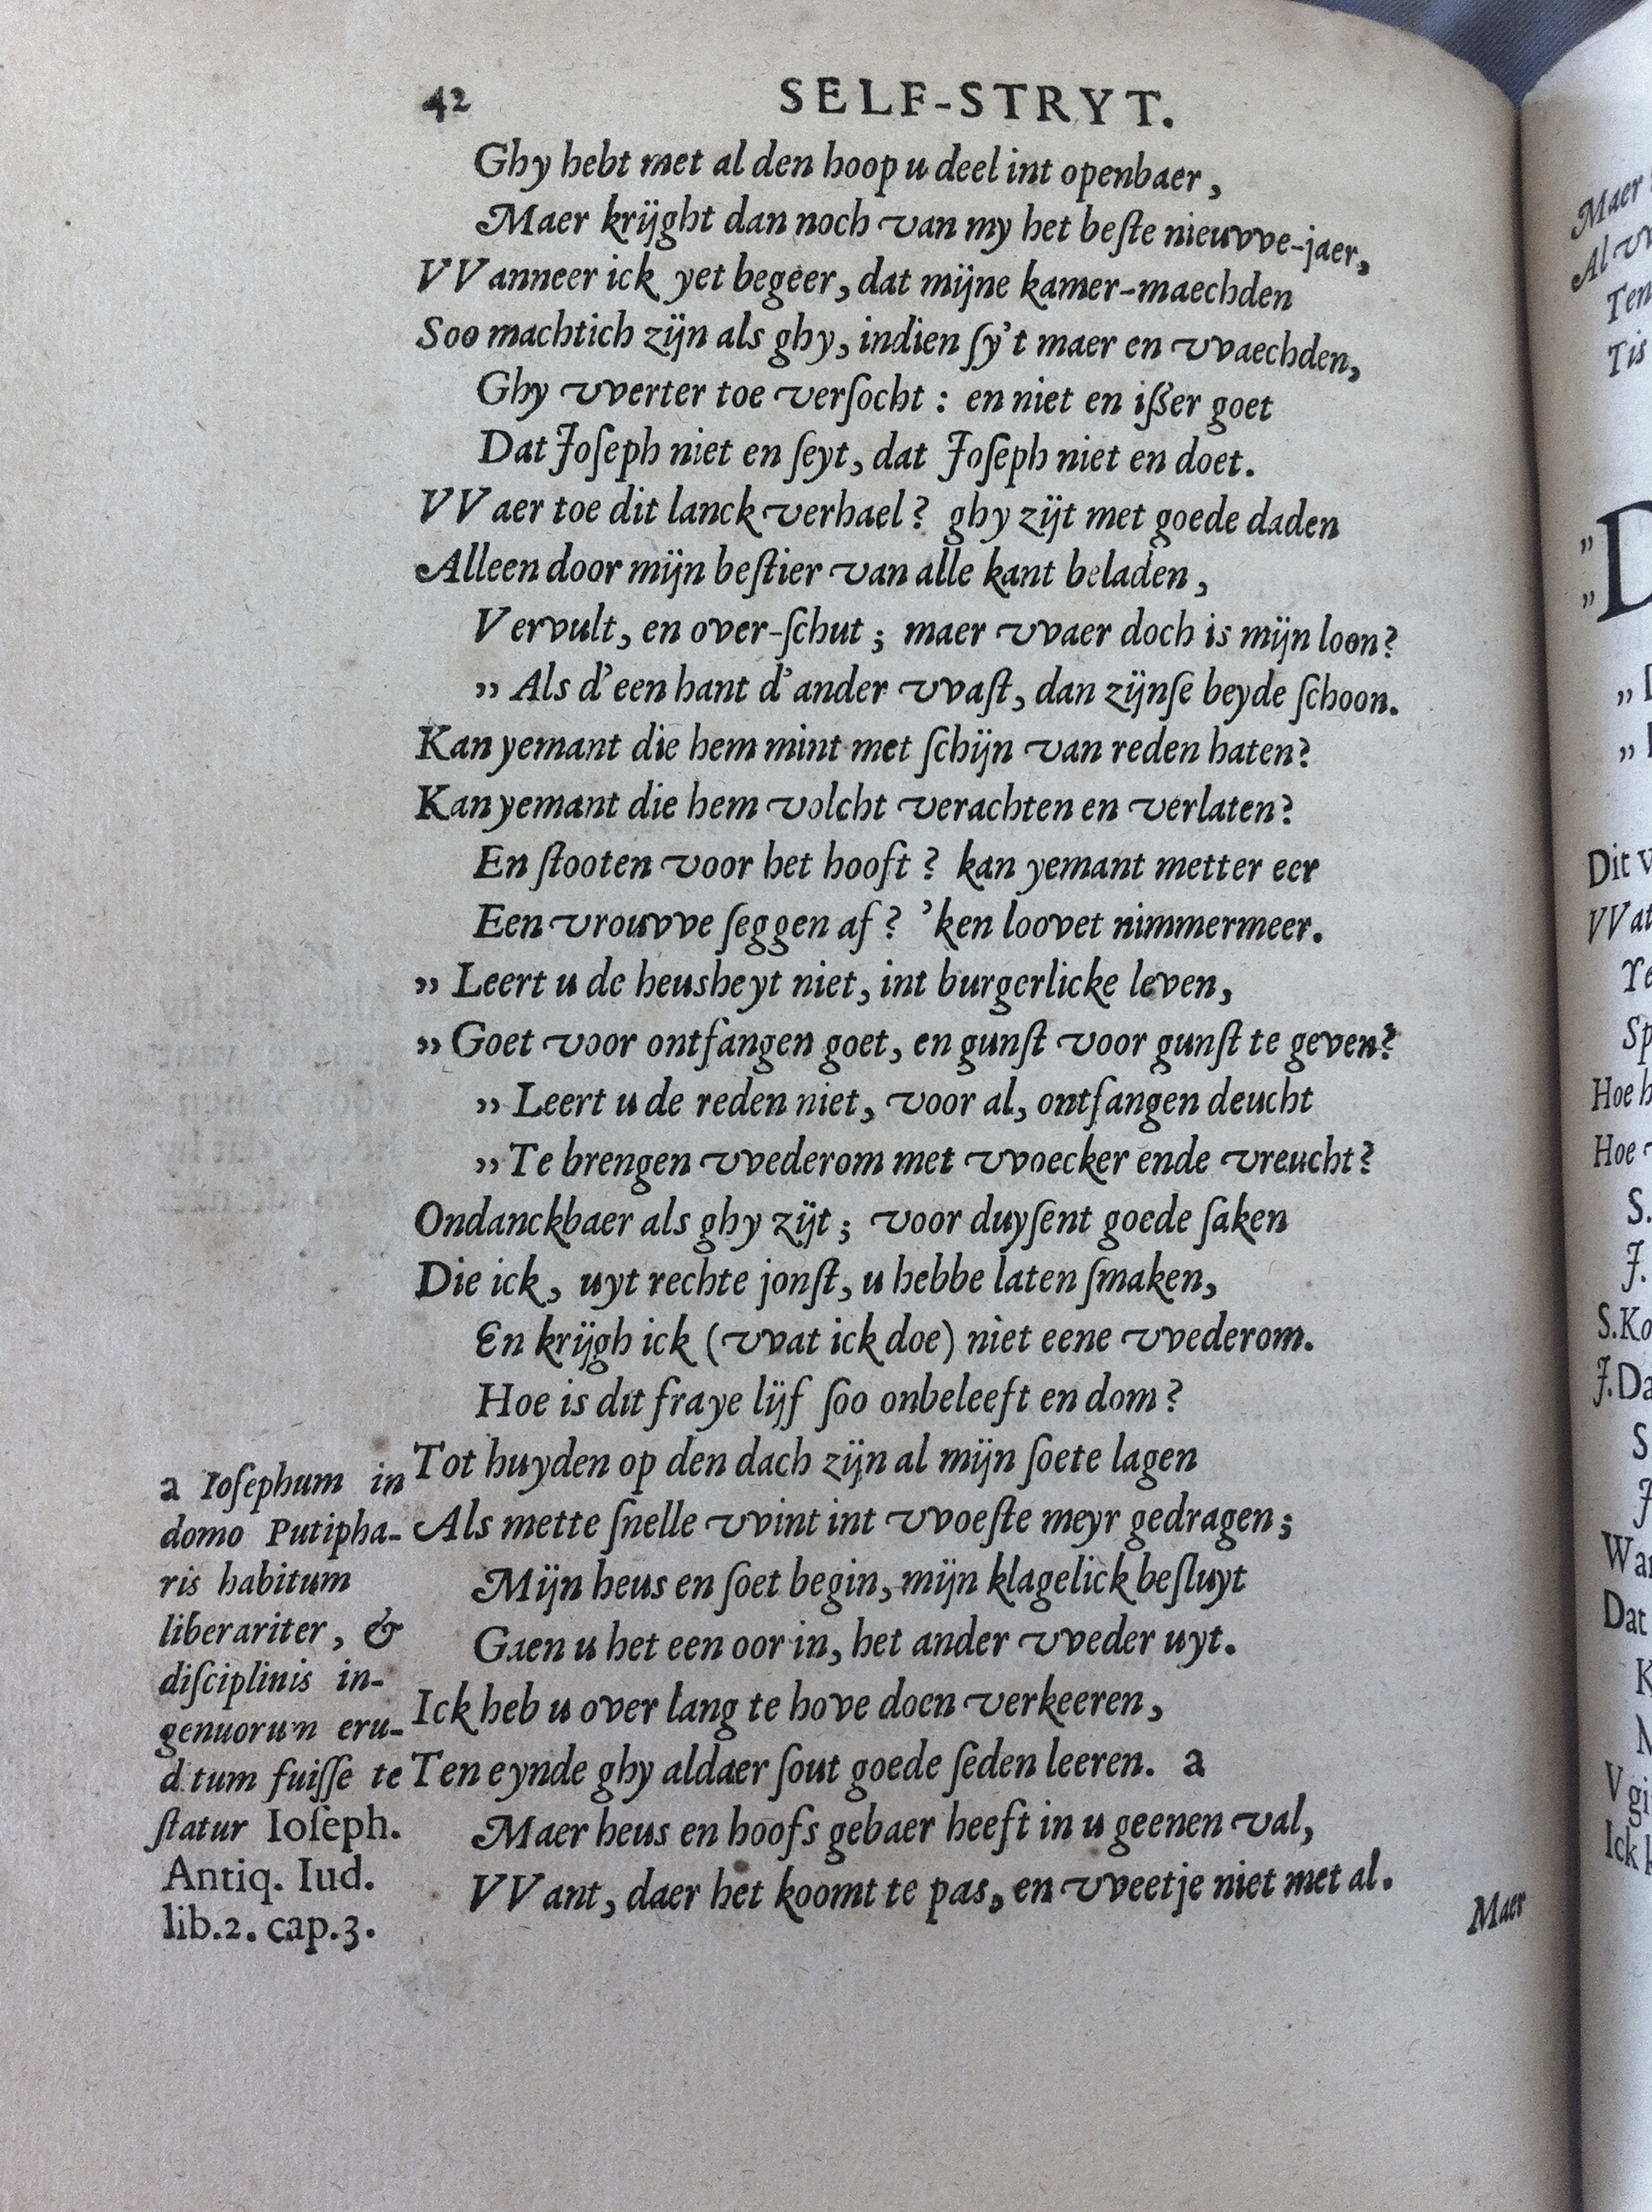 42 SELF-STRYT.
Ghy hebt met al den hoop u deel int openbaer,
Maer krijght dan noch van my het beſte nieuvve-jaer,
VVanneer ick yet begeer, dat mijne kamer-maechden
Soo machtich zijn als ghy, indien ſy't maer en vvaechden,
Ghy vverter toe verſocht : en niet en ißer goet
Dat Joſeph niet en ſeyt, dat Joſeph niet en doet.
VVaer toe dit lanck verhael? ghy zijt met goede daden
Alleen door mijn beſtier van alle kant beladen,
Vervult, en over-ſchut; maer vvaer doch is mijn loon?
„ Als d'een hant d'ander vvaſt, dan zijnſe beyde ſchoon.
Kan yemant die hem mint met ſchijn van reden haten?
Kan yemant die hem volcht verachten en verlaten?
En ſtooten voor het hooft? kan yemant metter eer
Een vrouvve ſeggen af? 'ken loovet nimmermeer.
„ Leert u de heusheyt niet, int burgerlicke leven,
„ Goet voor ontfangen goet, en gunſt voor gunſt te geven?
„ Leert u de reden niet, voor al, ontfangen deucht
„ Te brengen vvederom met vvoecker ende vreucht?
Ondanckbaer als ghy zijt; voor duyſent goede ſaken
Die ick, uyt rechte jonſt, u hebbe laten ſmaken,
En krijgh ick (vvat ick doe) niet eene vvederom.
Hoe is dit fraye lijf ſoo onbeleeft en dom?
Tot huyden op den dach zijn al mijn ſoete lagen
Als mette ſnelle vvint int vvoeſte meyr gedragen;
Mijn heus en ſoet begin, mijn klagelick beſluyt
Gaen u het een oor in, het ander vveder uyt.
Ick heb u over lang te hove doen verkeeren,
Ten eynde ghy aldaer ſout goede ſeden leeren. a
Maer heus en hoofs gebaer heeft in u geenen val,
VVant, daer het koomt te pas, en vveetje niet met al.
Maer
a Ioſephum in
domo Putipha-
ris habitum
liberariter, &
diſciplinis in-
genuorum eru-
d.tum fuiſſe te
ſtatur Ioſeph.
Antiq. Iud.
lib.2. cap.3.
Maer
Al
Ten
Tis
„ D
„
„
„
Dit
VVat
Te
Sp
Hoe
Hoe
S.
J.
S.Ko
J.Da
S
J
Wa
Dat
K
M
V gi
Ick